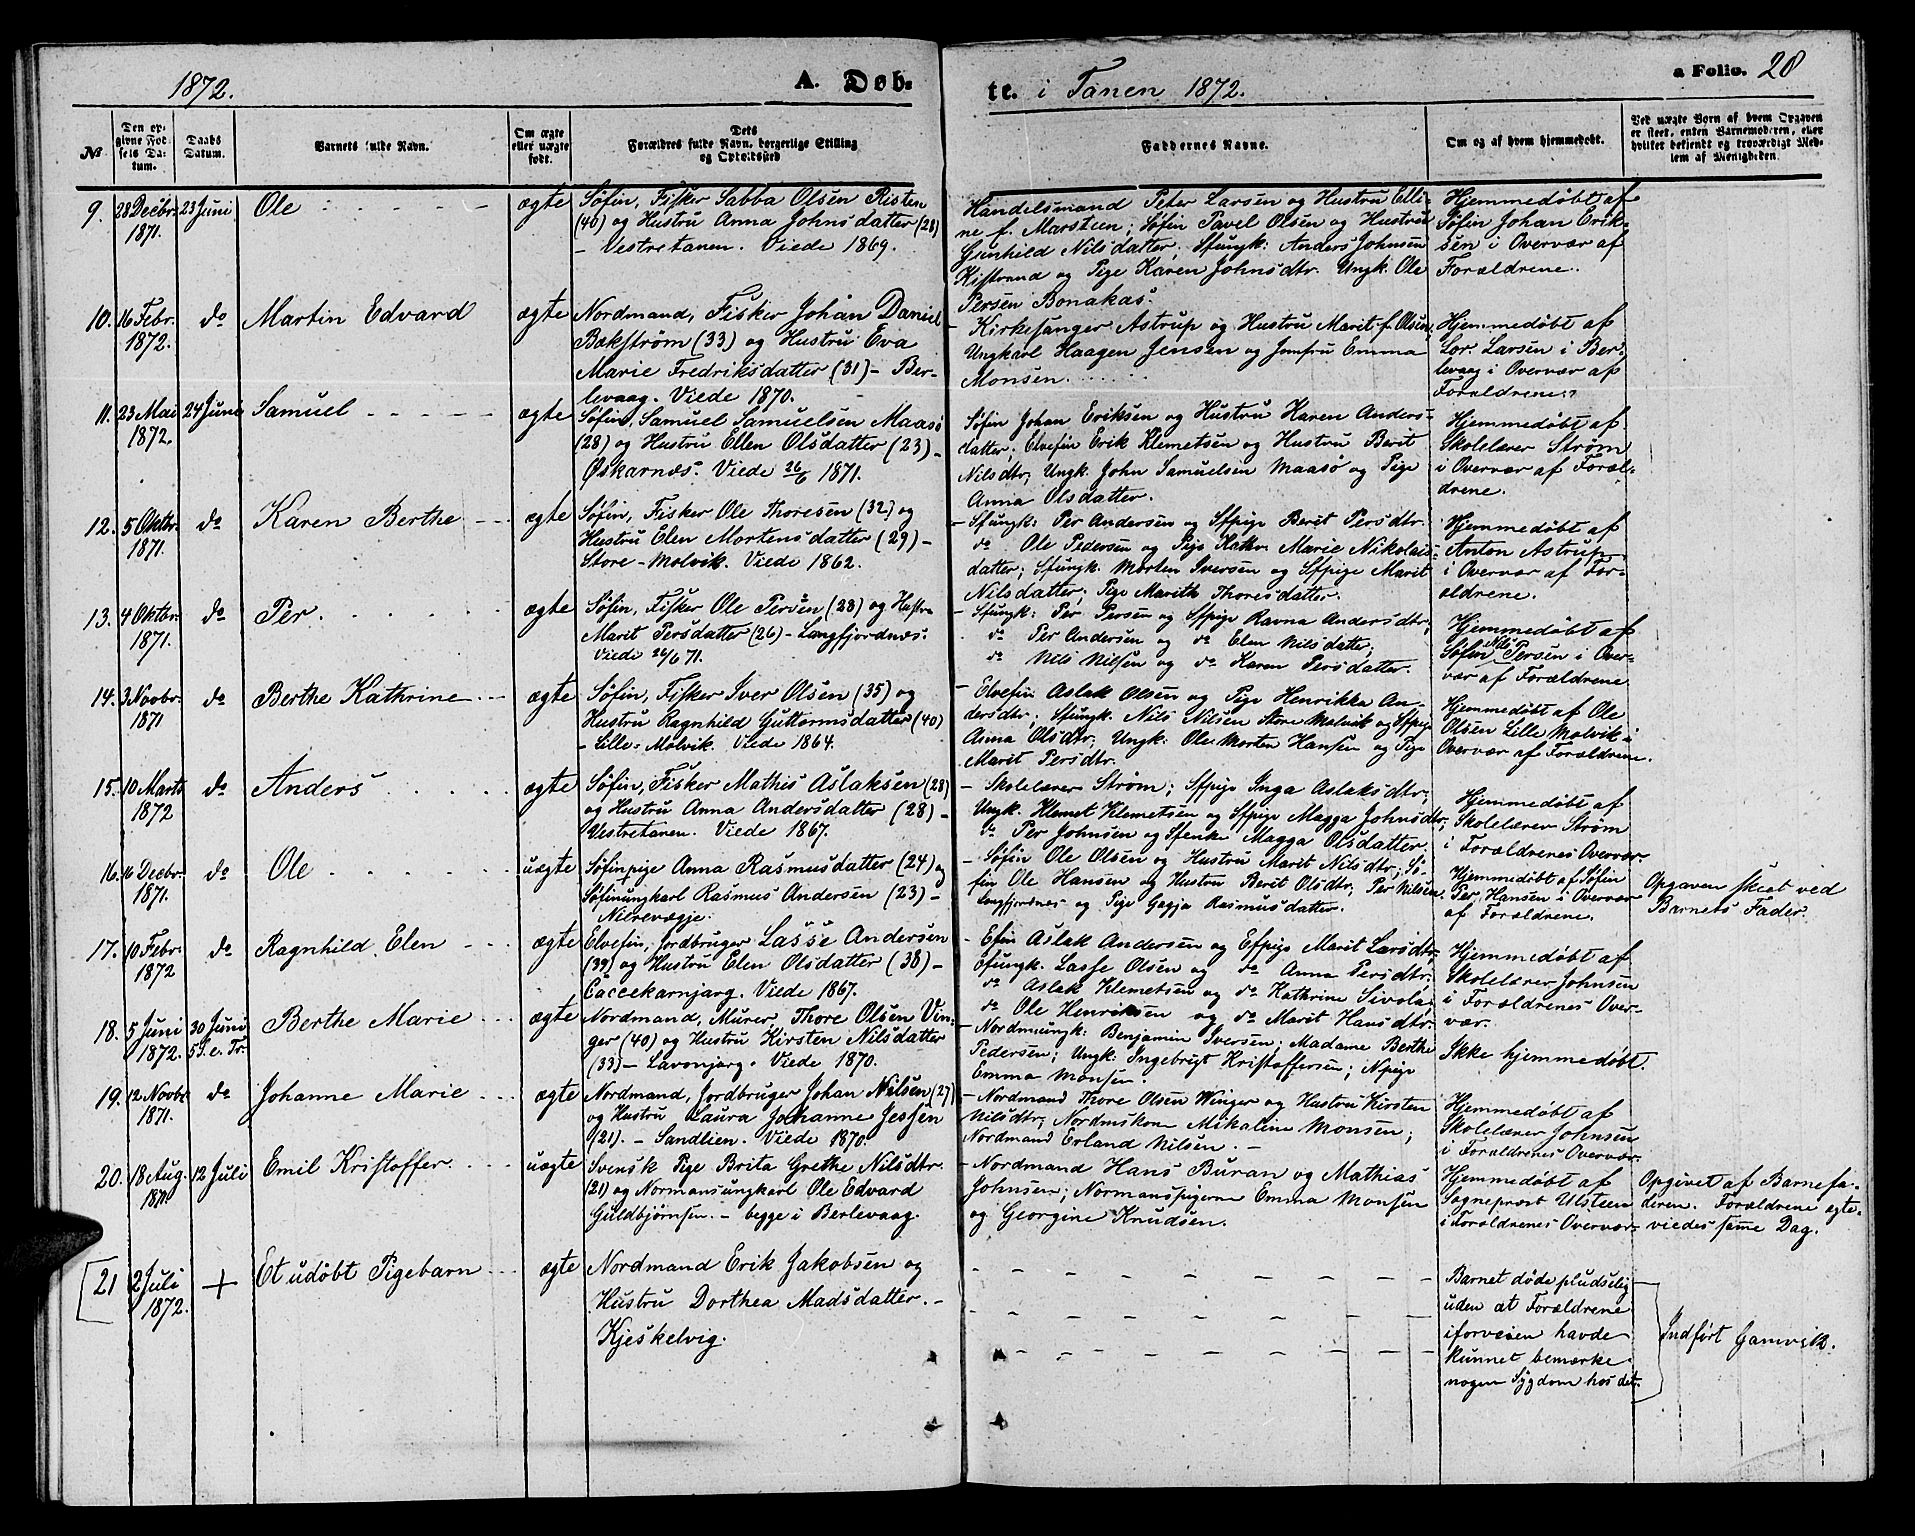 1872.
A. Døb-
te. i Tanen 1872.
a Folio. 28
No
Den opgivne Fødsels Datum.
Daabs Datum.
Barnets fulde Navn.
Om ægte eller uægte født.
Dets Forældres fulde Navn, borgerlige Stilling og Opholdssted
Faddernes Navne.
Om og af hvem hjemmedøbt.
Ved uægte Børn af hvem Opgaven er skeet, enten Barnemoderen, eller hvilket bekjendt og troværdigt Medlem af Menigheden.
9. 28 Decbr. 1871. 23 Juni Ole ægte
Søfin, Fisker Sabba Olsen Risten
(40) og Hustru Anna Johnsdatter (28)
- Vestretanen. Viede 1869.
Handelsmand Peter Larsen og Hustru Elli-
ne f. Marsteen; Søfin Pavel Olsen og Hustru
Gunhild Nilsdatter; Sfungk: Anders Johnsen
Kistrand og Pige Karen Johnsdtr. Ungk. Ole
Persen Bonakas.
Hjemmedøbt af
Søfin Johan Erik-
sen i Overvær af
Forældrene.
10. 16 Febr. 1872. do Martin Edvard ægte
Nordmand, Fisker Johan Daniel
Bækstrøm (33) og Hustru Eva
Marie Fredriksdatter (31) - Ber-
levaag. Viede 1870.
- Kirkesanger Astrup og Hustru Marit f. Olsen,
Ungkarl Haagen Jensen og Jomfru Emma
Monsen.
Hjemmedøbt af
Lor. Larsen i Ber-
levaag i Overvær af
Forældrene.
11. 23 Mai 1872. 24 Juni Samuel ægte
Søfin, Samuel Samuelsen Maasø
(28) og Hustru Ellen Olsdatter (23) -
Øskarnæs. Viede 26/6 1871.
Søfin Johan Eriksen og Hustru Karen Anders-
datter; Elvefin Erik Klemetsen og Hustru Berit
Nilsdtr; Ungk. John Samuelsen Maasø og Pige
Anna Olsdatter.
Hjemmedøbt af
Skolelærer Strøm
i Overvær af Foræl-
drene.
12. 5 Oktbr. 1871. do Karen Berthe ægte
Søfin, Fisker Ole Thoresen (32) og
Hustru Elen Mortensdatter (29) -
Store-Molvik. Viede 1862.
- Sfungk: Per Andersen og Sfpige Berit Persdtr.
do Ole Pedersen og Pige Kathr. Marie Nikolais-
datter; Sfungk. Morten Iversen og Sfpige Marit
Nilsdatter; Pige Marith Thoresdatter.
Hjemmedøbt af
Anton Astrup
i Overvær af For-
ældrene.
13. 4 Oktbr. 1871. do Per ægte
Søfin, Fisker Ole Persen (28) og Hustru
Marit Persdatter (26) - Langfjordnæs.
Viede 26/6 71.
- Sfungk: Per Persen og Sfpige Ravna Andersdtr;
do Per Andersen og do Elen Nilsdatter;
do Nils Nilsen og do Karen Persdatter.
Hjemmedøbt af
Søfin Nils Persen i Over-
vær af Forældrene
14. 3 Novbr. 1871 do Berthe Kathrine ægte
Søfin, Fisker Iver Olsen (35) og
Hustru Ragnhild Guttormsdatter (40)
- Lille-Molvik. Viede 1864.
- Elvefin Aslak Olsen og Pige Henrikka An-
dersdtr; Sfungk. Nils Nilsen Store Molvik og Sfpige
Anna Olsdtr; Ungk: Ole Morten Hansen og Pige
Marit Persdtr.
Hjemmedøbt af Ole
Olsen Lille Molvik i
Overvær af Forældrene.
15. 10 Marts 1872 do Anders ægte
Søfin, Fisker Mathis Aslaksen (28)
og Hustru Anna Andersdatter (28) -
Vestretanen. Viede 1867.
- Skolelærer Strøm; Sfpige Inga Aslaksdtr;
Ungk. Klemet Klemetsen og Sfpige Magga Johnsdtr;
do Per Johnsen og Sfenke Magga Olsdatter.
Hjemmedøbt af
Skolelærer Strøm
i Forældrenes Overvær
16. 16 Decbr. 1871. do Ole uægte
Søfinpige Anna Rasmusdatter (24) og
Søfinungkarl Rasmus Andersen (23) -
Nirevægje.
- Søfin Ole Olsen og Hustru Marit Nilsdtr; Sø-
fin Ole Hansen og Hustru Berit Olsdtr; Per Nilsen
Langfjordnes og Pige Gagja Rasmusdatter.
Hjemmedøbt af Søfin
Per Hansen i Overvær
af Forældrene.
Opgaven skeet ved
Barnets Fader.
17. 10 Febr. 1872 do Ragnhild Elen ægte
Elvefin, Jordbruger Lasse Andersen
(39) og Hustru Elen Olsdatter (38) -
Caccekarnjarg. Viede 1867.
- Efin Aslak Andersen og Efpige Marit Larsdtr;
Efungk. Lasse Olsen og do Anna Persdtr;
do Aslak Klemetsen og do Kathrine Sivola;
do Ole Henriksen og do Marit Hansdtr.
Hjemmedøbt af
Skolelærer Johnsen
i Forældrenes Over-
vær.
18. 5 Juni 1872. 30 Juni 5 S. e. Tr. Berthe Marie ægte
Nordmand, Murer Thore Olsen Vin-
ger (40) og Hustru Kirsten Nilsdatter
(33) - Lavonjarg. Viede 1870.
- Nordmungk: Benjamin Iversen; Madame Berthe
Pedersen; Ungk: Ingebrigt Kristoffersen; Npige
Emma Monsen.
Ikke hjemmedøbt.
19. 12 Novbr 1871. do Johanne Marie ægte
Nordmand, Jordbruger Johan Nilsen (27)
og Hustru Laura Johanne Jessen
(21). - Sandlien. Viede 1870.
- Nordmand Thore Olsen Winger og Hustru Kirsten
Nilsdtr; Nordmskone Mikaline Monsen;
Nordmand Erland Nilsen. -
Hjemmedøbt af
Skolelærer Johnsen
i Forældrenes Overvær.
20. 18 Aug. 1871. 12 Juli Emil Kristoffer uægte
Svensk Pige Brita Grethe Nilsdtr.
(21) og Normansungkarl Ole Edvard
Guldbjørnsen. - begge i Berlevaag.
- Nordmand Hans Buran og Mathias
Johnsen; Normanspigerne Emma Monsen
og Georgine Knudsen.
Hjemmedøbt af
Sogneprest Ulsteen
i Forældrenes Overvær.
Opgivet af Barnefa-
deren. Forældrene ægte-
viedes samme Dag.
21 2 Juli 1872. + Et udøbt Pigebarn ægte
Nordmand Erik Jakobsen og
Hustru Dorthea Madsdatter. -
Kjeskelvig.
Barnet døde pludselig
uden at Forældrene
iforveien havde
kunnet bemærke
nogen Sygdom hos det.
Indført Gamvik.